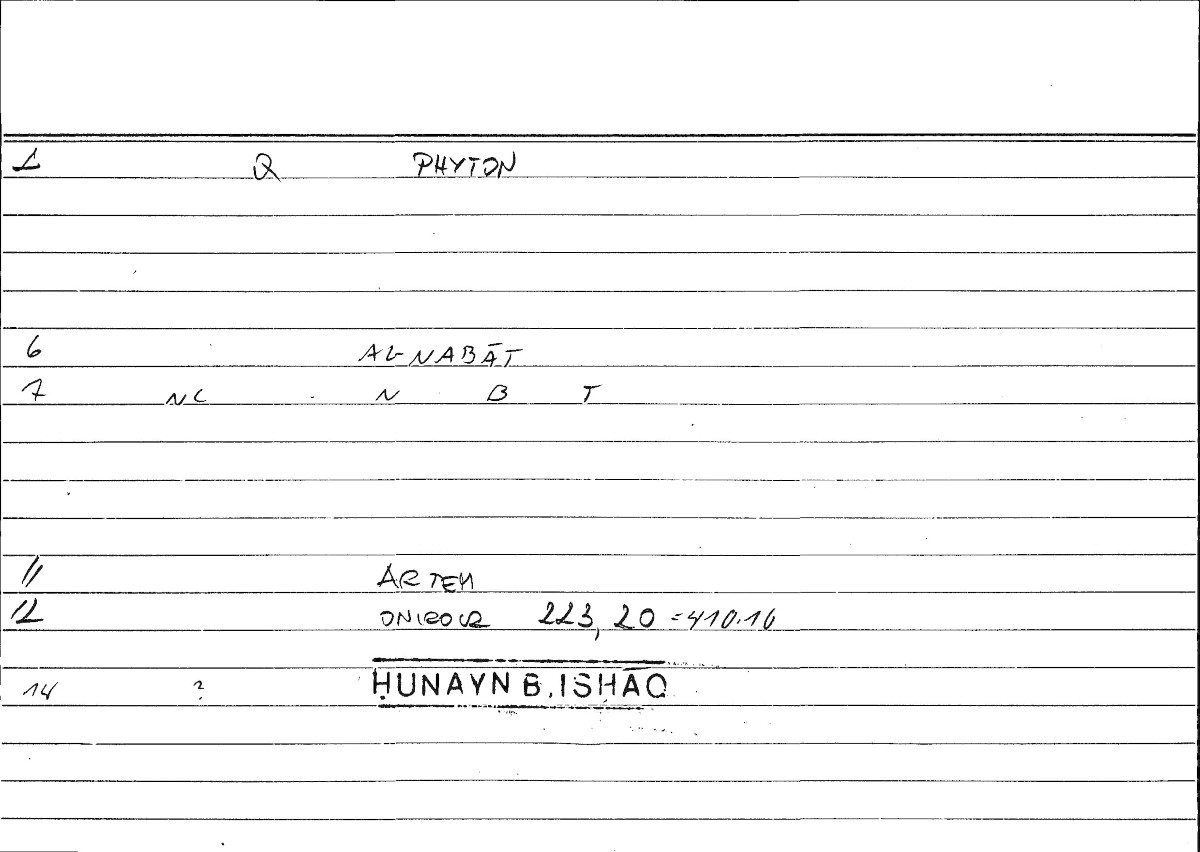 1 Q PHYTON
6 AL-NABĀT
7 NC N B T
11 ARTEM
12 ONIROCR 223, 20 = 410.16
14 ? ḤUNAYN B. ISḤĀQ